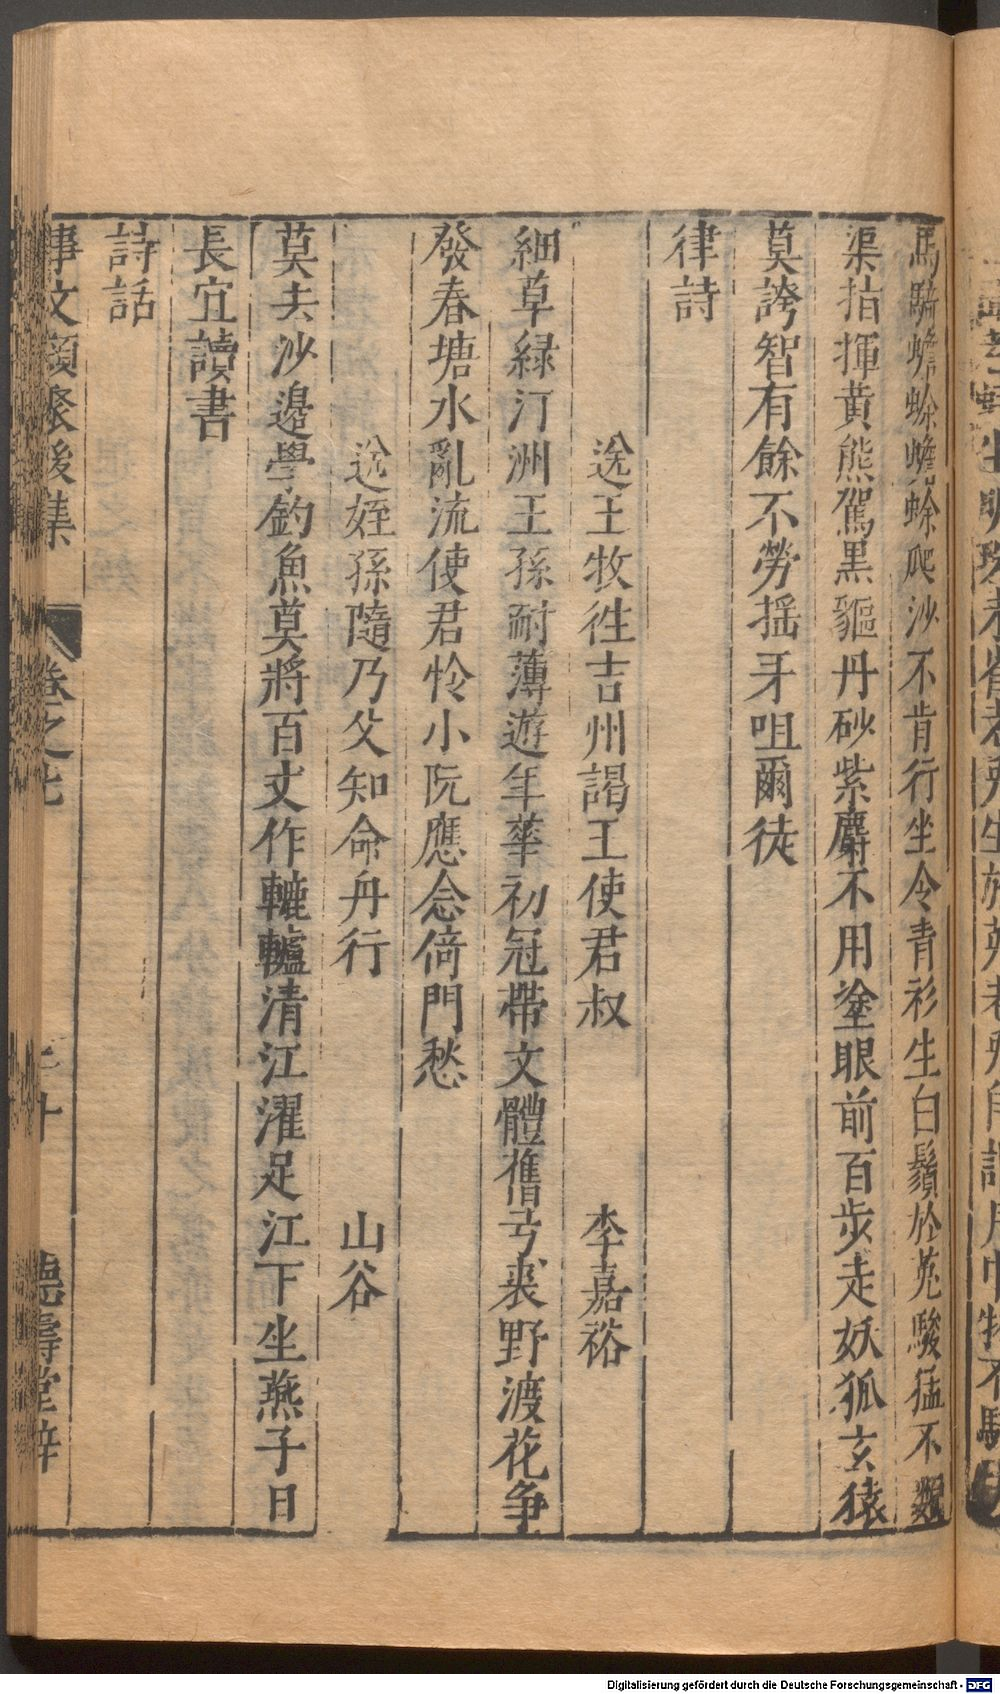 馬騎蟾蜍蟾蜍爬沙不肯行坐令青衫生白鬚於菟駿猛不類
渠指揮黃熊駕黑貙丹砂紫麝不用塗眼前百步走妖狐玄猿
莫誇智有餘不勞揺牙咀爾徒
律詩
送王牧徃吉州謁王使君叔 李嘉裕
細草緑汀洲王孫耐薄遊年華初冠帶文體舊弓裘野渡花爭
發春塘水亂流使君怜小阮應念倚門愁
送姪孫隨乃父知命舟行 山谷
莫去沙邉學釣魚莫將百丈作轆轤清江濯足江下坐燕子日
長宜讀書
詩話
事文類聚後集 卷之七 二十 德壽堂梓
Digitalisierung gefördert durch die Deutsche Forschungsgemeinschaft - DFG